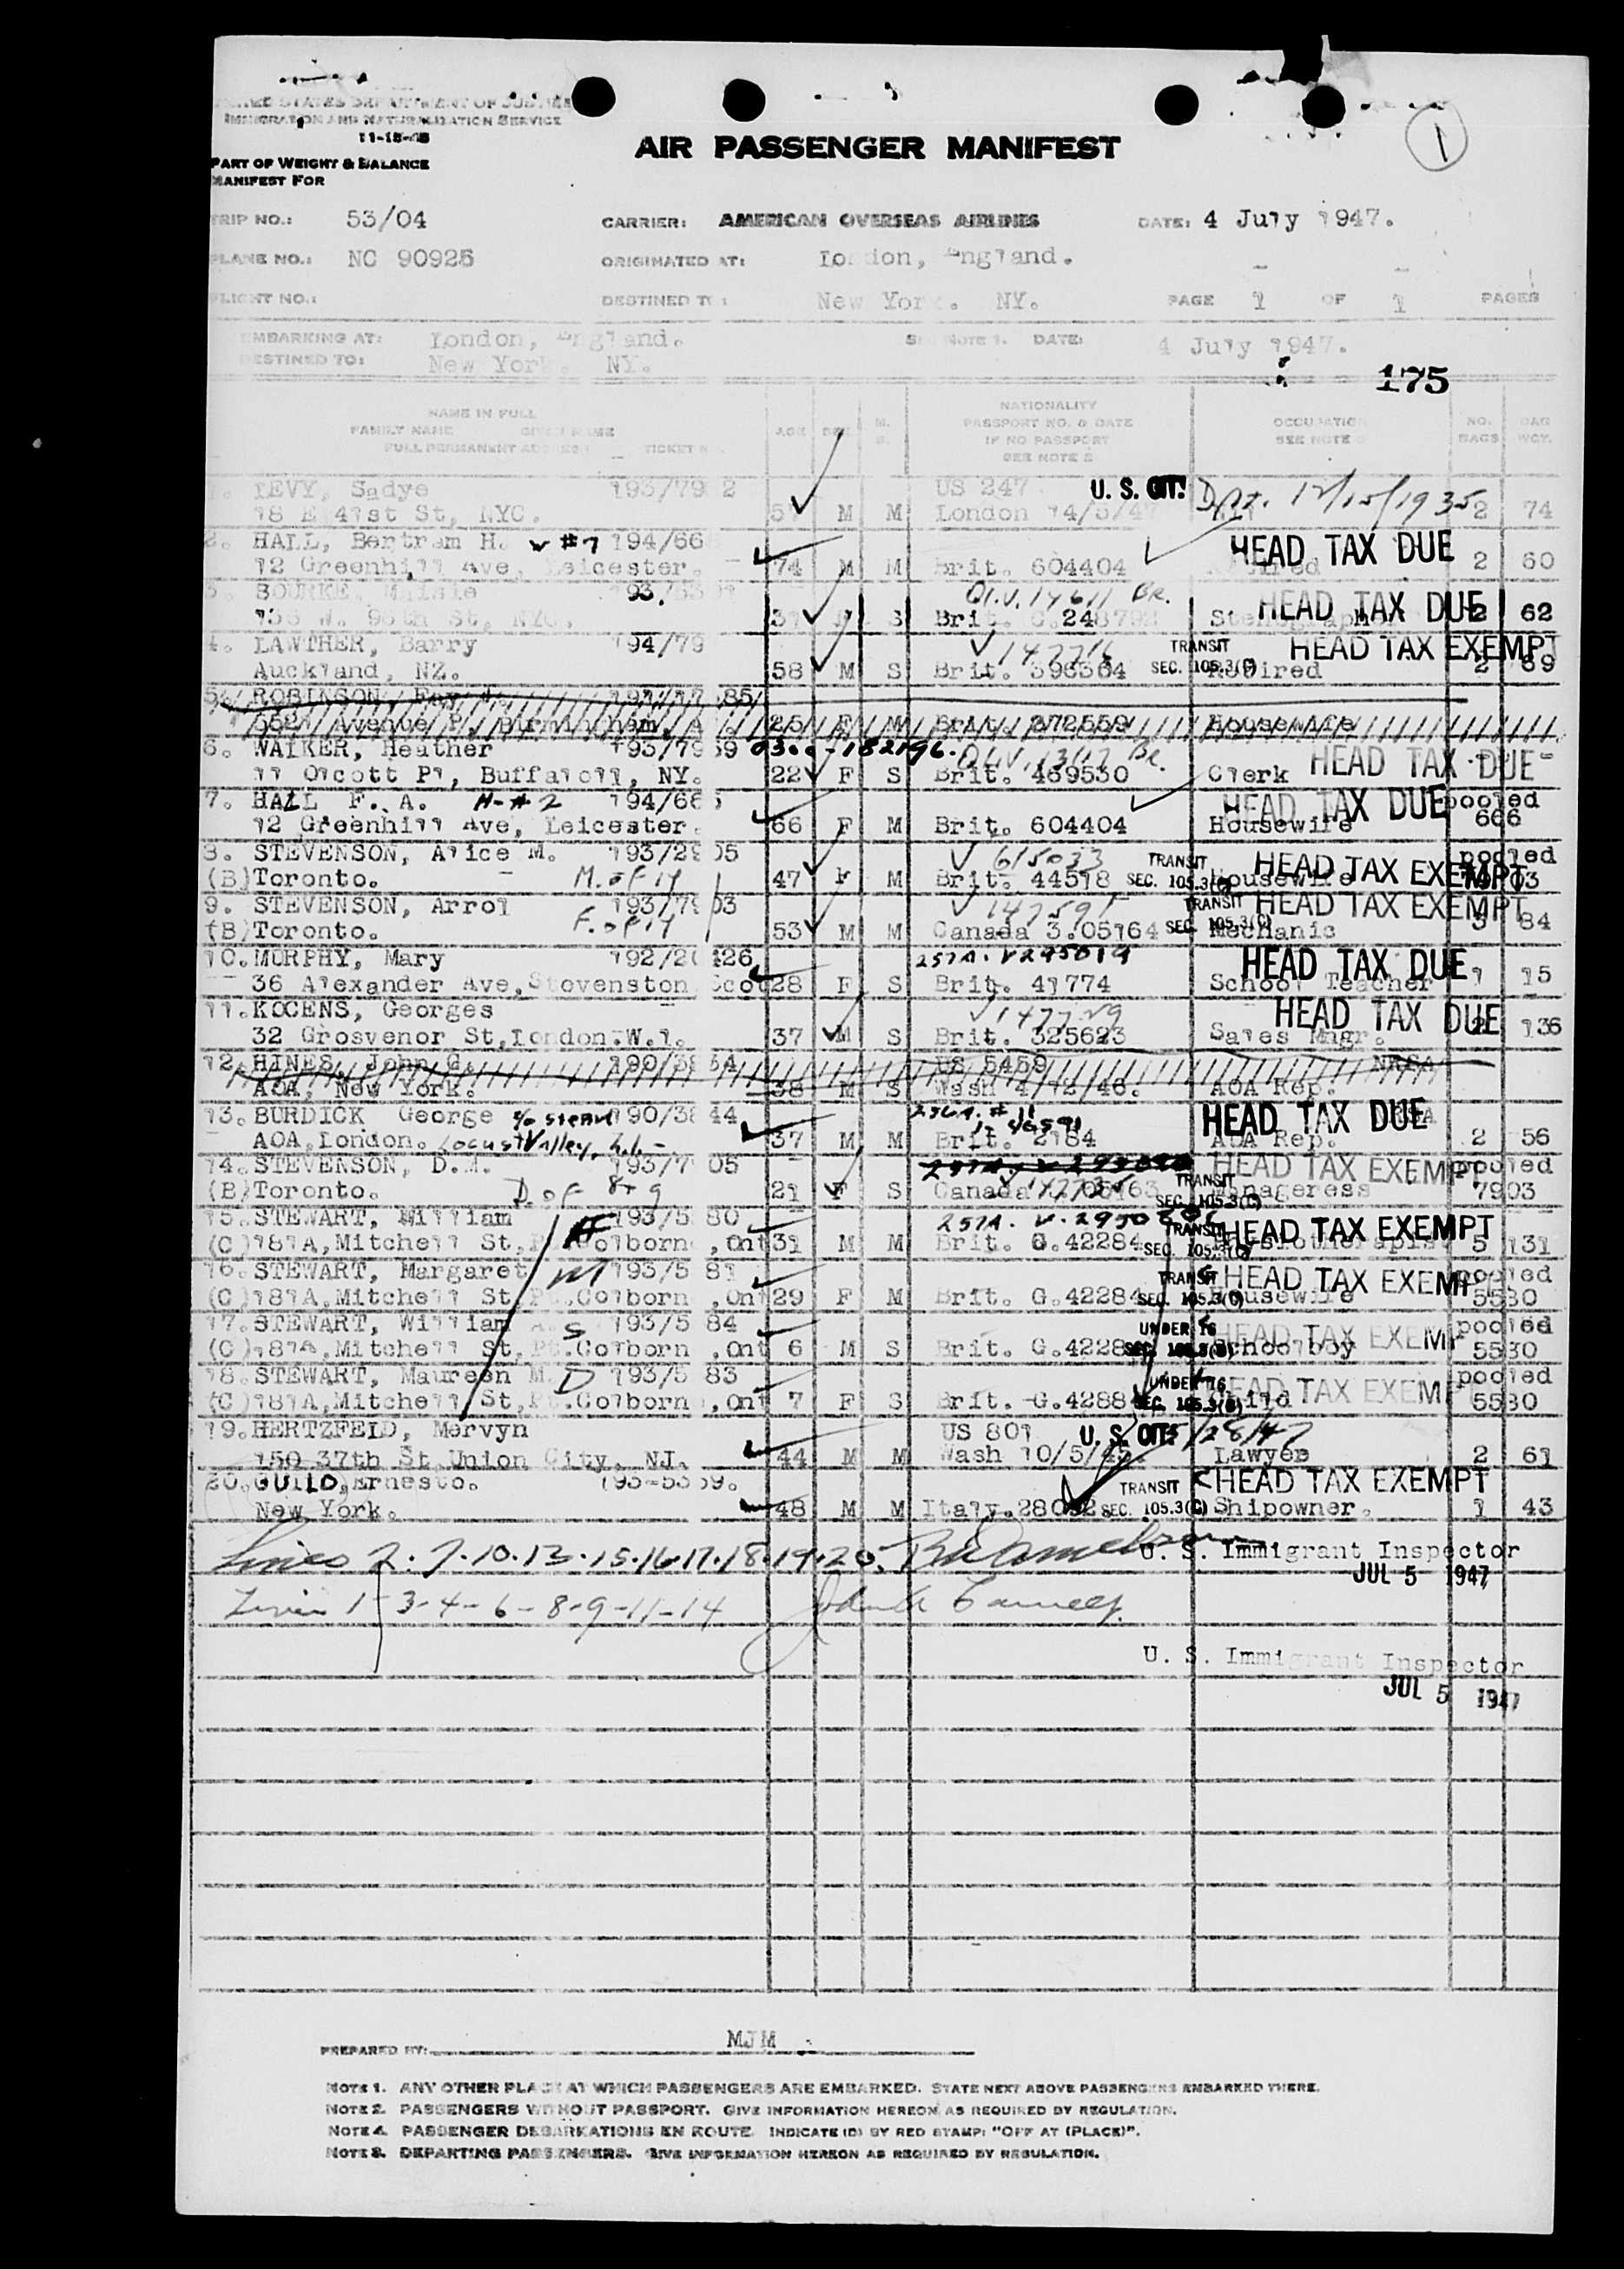 UNITED STATES DEPARTMENT OF JUSTICE
IMMIGRATION AND NATURALIZATION SERVICE
11-15-45
PART OF WEIGHT & BALANCE
MANIFEST FOR
AIR PASSENGER MANIFEST
1
TRIP NO.: 53/04 CARRIER: AMERICAN OVERSEAS AIRLINES DATE: 4 July 1947.
PLANE NO.: NC 90925 ORIGINATED AT: London, England.
FLIGHT NO.: DESTINED TO: New York. NY. PAGE 1 OF 1 PAGES
EMBARKING AT: London, England. SEE NOTE 1. DATE: 4 July 1947.
DESTINED TO: New York. NY.
175
NAME IN FULL
FAMILY NAME GIVEN NAME
FULL PERMANENT ADDRESS TICKET NO.
AGE SEX M. S.
NATIONALITY
PASSPORT NO. & DATE
IF NO PASSPORT
SEE NOTE 2
OCCUPATION
SEE NOTE
NO. BAGS BAG WGT.
1. LEVY, Sadye 193/79 2 US 247 U. S. CIT. 12/15/1935
18 E 41st St, NYC. M M London 2 74
2. HALL, Bertram H. w #7 194/66 HEAD TAX DUE
12 Greenhill Ave, Leicester. 74 M M Brit. 604404 2 60
3. BOURKE, 193/ QI.V. 14611 Br. HEAD TAX DUE
W. 96th St, NYC. 31 F S Brit. C.248792 Stenographer 2 62
4. LAWTHER, Barry 194/79 V 147716 TRANSIT HEAD TAX EXEMPT
Auckland, NZ. 58 M S Brit. 396364 SEC. 105.3(C) Retired 2 69
5. ROBINSON, 85
Avenue P., Birmingham, 25 F M Brit. 372559 Housewife
6. WALKER, Heather 193/79 59 0300-182196. QI.V. 13117 Br. HEAD TAX DUE
11 Olcott Pl, Buffalo, NY. 22 F S Brit. 469530 Clerk
7. HALL F. A. H-#2 194/66 HEAD TAX DUE pooled
12 Greenhill Ave, Leicester. 66 F M Brit. 604404 Housewife 666
8. STEVENSON, Alice M. 193/79 05 V 615033 TRANSIT HEAD TAX EXEMPT pooled
(B) Toronto. M. of 14 47 F M Brit. 44518 SEC. 105.3(C) Housewife 7903
9. STEVENSON, Arrol 193/79 03 V 147591 TRANSIT HEAD TAX EXEMPT
(B) Toronto. F. of 14 53 M M Canada 3.05164 SEC. 105.3(C) Mechanic 3 84
10. MURPHY, Mary 192/20 426 257A. V295019 HEAD TAX DUE
36 Alexander Ave, Stevenston Scot 28 F S Brit. 41774 School Teacher 1 15
11. KOCENS, Georges V 147729 HEAD TAX DUE
32 Grosvenor St, London.W.1. 37 M S Brit. 325623 Sales Mngr. 2 136
12. HINES, John G. 190/38 54 US 5459 NRSA
AOA, New York. 38 M S Wash 4/12/46. AOA Rep.
13. BURDICK George 190/38 44 256A. # 11 HEAD TAX DUE
AOA, London. Locust Valley, L.I. 37 M M Brit. 2184 AOA Rep. 2 56
14. STEVENSON, D.M. 193/7 05 HEAD TAX EXEMPT pooled
(B) Toronto. D of 8+9 21 F S Canada TRANSIT SEC. 105.3(C) Manageress 7903
15. STEWART, William F 193/5 80 257A. V. TRANSIT HEAD TAX EXEMPT
(C) 181A, Mitchell St, Pt. Colborn, Ont 31 M M Brit. G.42284 SEC. 105.3(C) 5 131
16. STEWART, Margaret M 193/5 81 TRANSIT HEAD TAX EXEMPT pooled
(C) 181A, Mitchell St, Pt. Colborn, Ont 29 F M Brit. G.42284 SEC. 105.3(C) Housewife 5580
17. STEWART, William S 193/5 84 UNDER 16 HEAD TAX EXEMPT pooled
(C) 181A, Mitchell St, Pt. Colborn, Ont 6 M S Brit. G.4228 SEC. 105.3(B) Schoolboy 5580
18. STEWART, Maureen M. D 193/5 83 UNDER 16 HEAD TAX EXEMPT pooled
(C) 181A, Mitchell St, Pt. Colborn, Ont 7 F S Brit. G.4288 SEC. 105.3(B) Child 5580
19. HERTZFELD, Mervyn US 801 U. S. CIT.
150 37th St Union City, NJ. 44 M M Wash 10/5/45. Lawyer 2 61
20. GUILD, Ernesto. 193-53 59. TRANSIT HEAD TAX EXEMPT
New York. 48 M M Italy. SEC. 105.3(C) Shipowner. 1 43
Lines 2.7.10.13.15.16.17.18.19.20. U. S. Immigrant Inspector
JUL 5 1947
Lines 1-3-4-6-8-9-11-14
U. S. Immigrant Inspector
JUL 5 1947
PREPARED BY: MJM
NOTE 1. ANY OTHER PLACE AT WHICH PASSENGERS ARE EMBARKED. STATE NEXT ABOVE PASSENGERS EMBARKED THERE.
NOTE 2. PASSENGERS WITHOUT PASSPORT. GIVE INFORMATION HEREON AS REQUIRED BY REGULATION.
NOTE 4. PASSENGER DEBARKATIONS EN ROUTE. INDICATE (D) BY RED STAMP: "OFF AT (PLACE)".
NOTE 3. DEPARTING PASSENGERS. GIVE INFORMATION HEREON AS REQUIRED BY REGULATION.